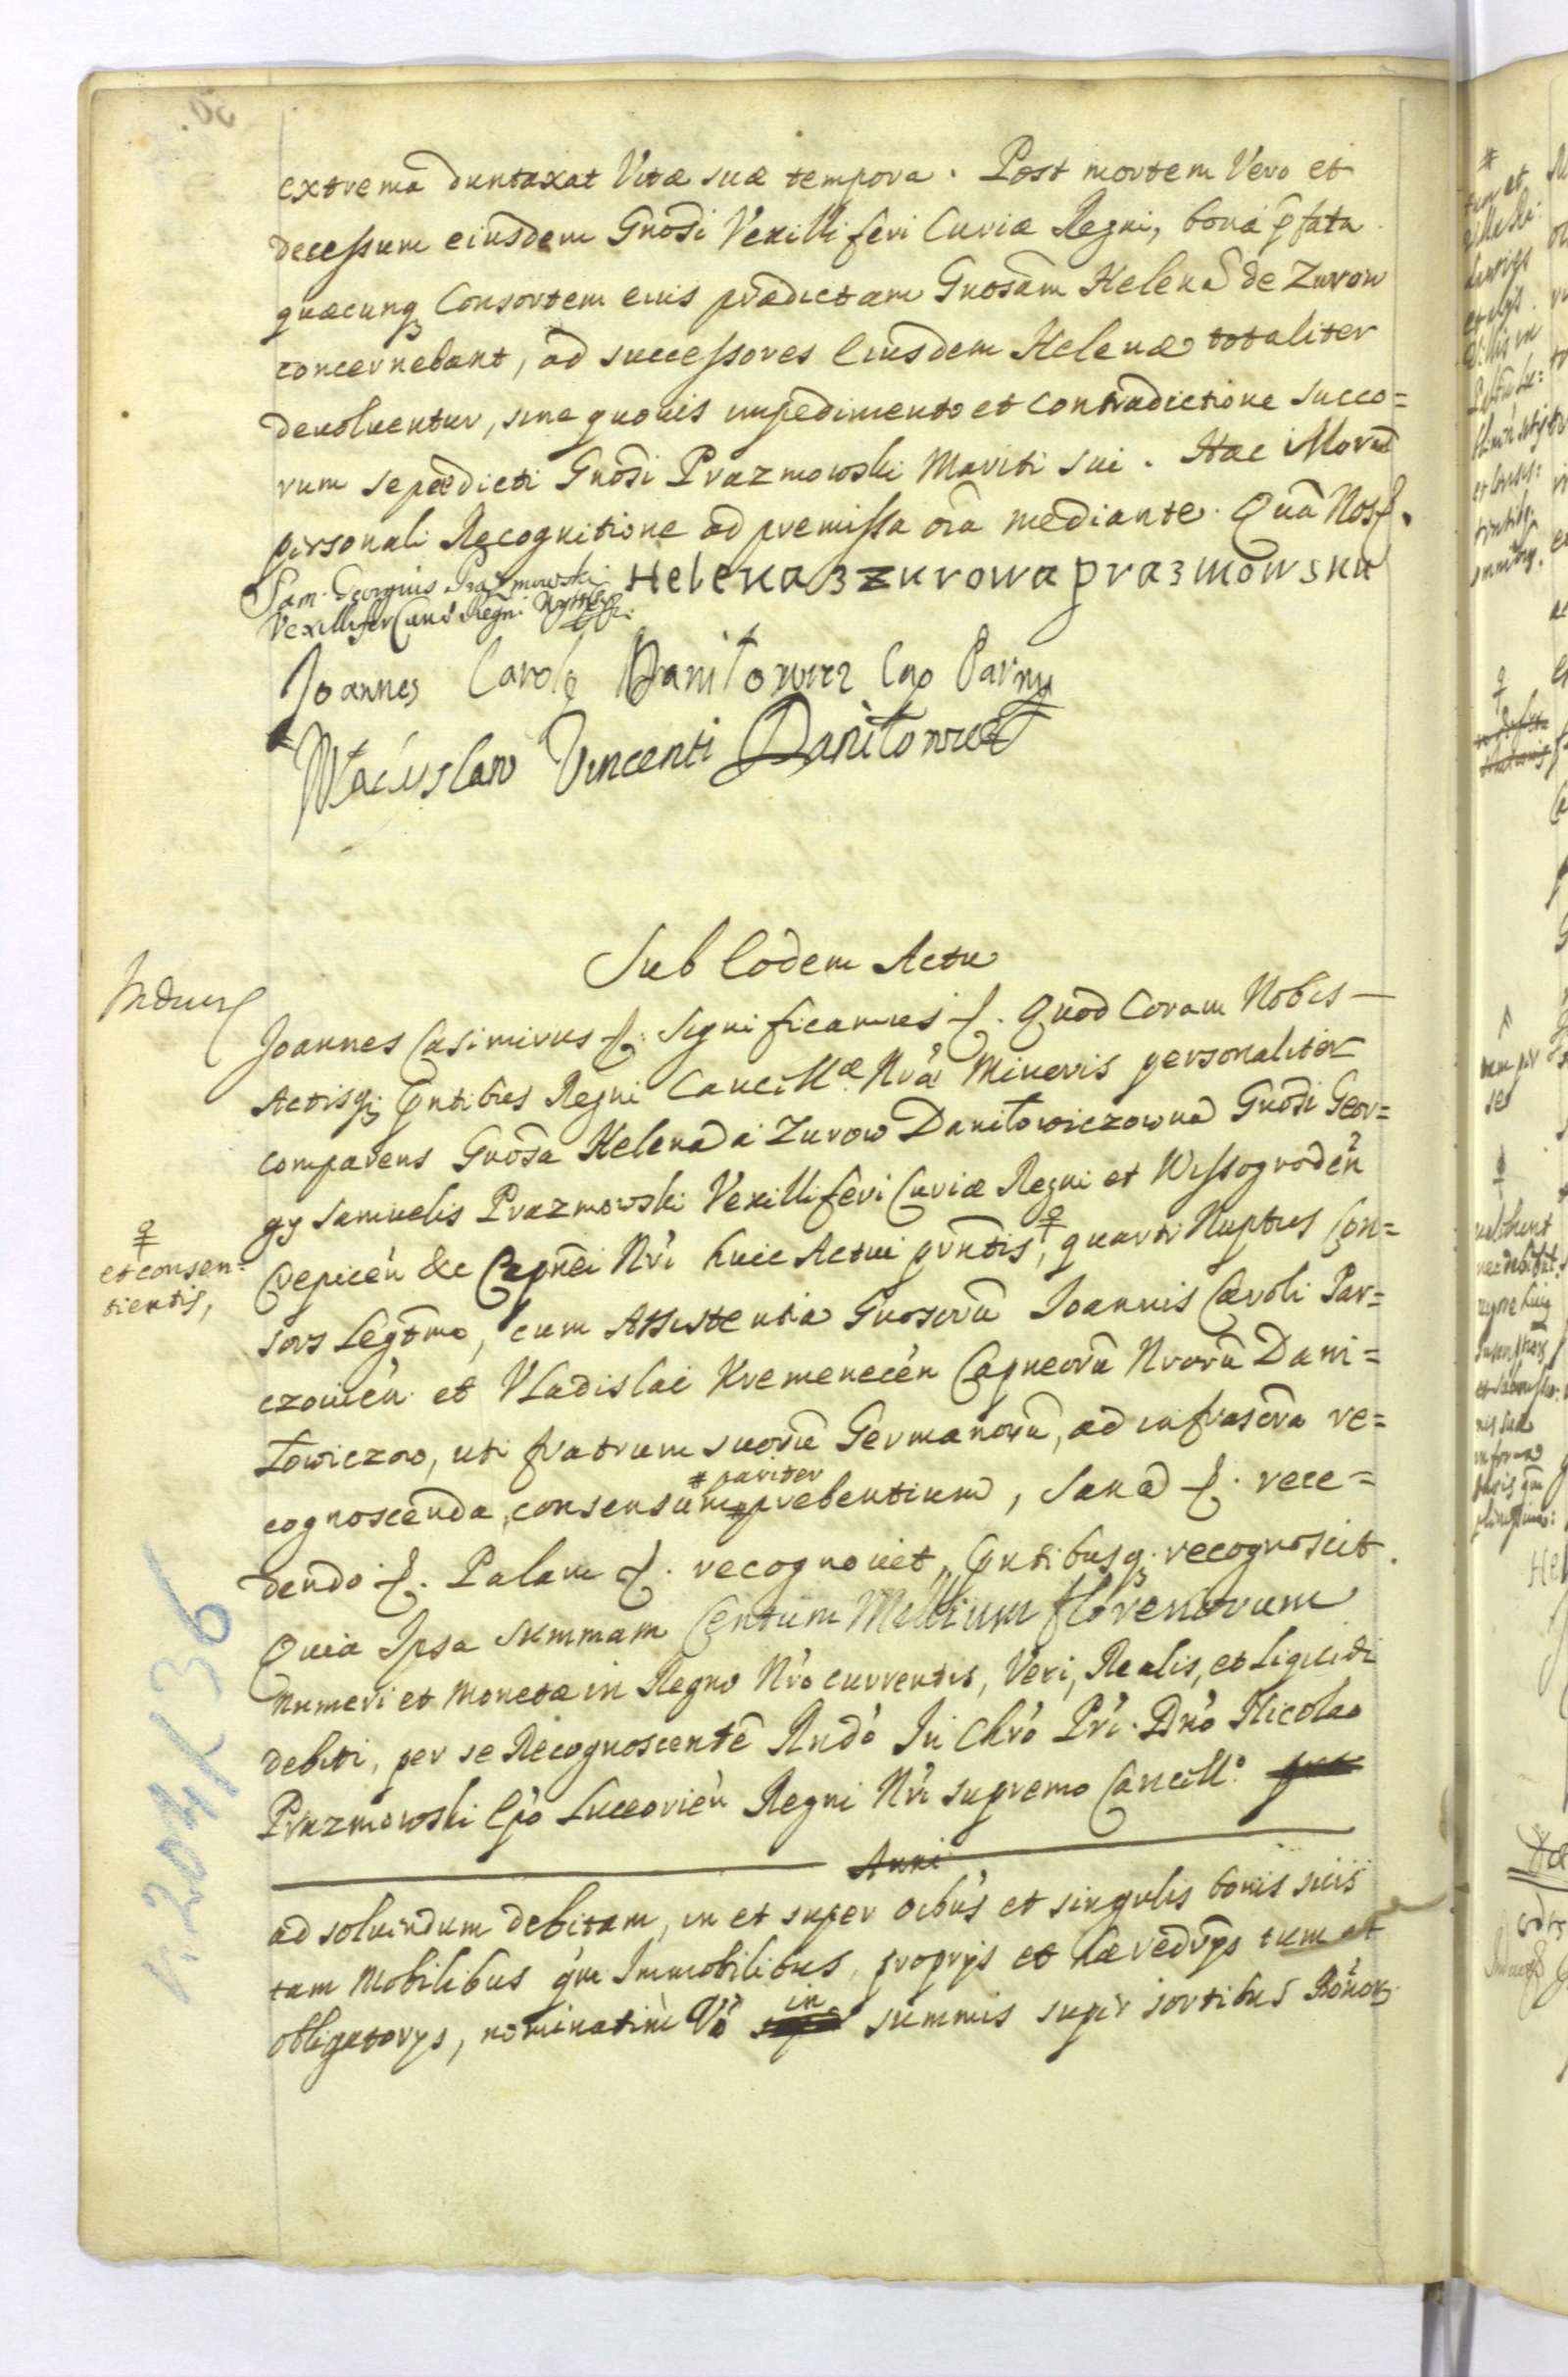 extrema duntaxat Vitæ suæ tempora. Post mortem Vero et
decessum eiusdem Gnosi Vexilliferi Curiæ Regni, bona pfata
quæcunq Consortem eius prædictam Gnosam Helena de Zurow
concernebant, ad successores Eiusdem Helenæ totaliter
deuoluentur, sine quouis impedimento et contradictione succo=
rum sepædicti Gnosi Prazmowski Mariti sui. Hac illorum
personali Recognitione ad premissa oia mediante. Qua Nos
Sam. Georgius Prazmowski
Vexillifer Curiæ Regni
Helena z zurowa prazmowska
Joannes Carolq Daniłowicz Cap Parny
Władysław Vincenti Daniłowicz
Sub Eodem Actu
Joannes Casimirus Significamus. Quod Coram Nobis
Actisq pntibus Regni Cancillæ Nræ Minoris personaliter
comparens Gnosa Helena a Zurow Daniłowiczowna Gnosi Geor=
gy Samuelis Prazmowski Vexilliferi Curiæ Regni et Wissogroden
Crepicen &c Capnei Nri huic Actui pntis, quarti Nuptus Con=
et consen=
tientis,
sors Legtma, cum Assistentia Gnosorum Joannis Caroli Par=
czouien et Vladislai Kremenecen Capneoru Nroru Dani=
łowiczow, uti fratrum suoru Germanoru, ad infrascra re=
cognoscenda, consensum pariter prebentium, Sana. rece=
dendo. Palam. recognouit, pntibusq recognoscit.
Quia Ipsa summam Centum Millium florenorum
numeri et Monetæ in Regno Nro currentis, Veri, Realis, et Liquidi
debiti, per se Recognoscente Rndo In Chro Pri Dno Nicolao
Prazmowski Epo Luceorien Regni Nri supremo Cancill.
Anni
ad soluendum debitam, in et super oibus et singulis bonis suis
tam Mobilibus qm Immobilibus, proprijs et hæredrijs tum et
obligatorys, nominatim Vo in summis super sortibus Bonor
V. 204 K 36